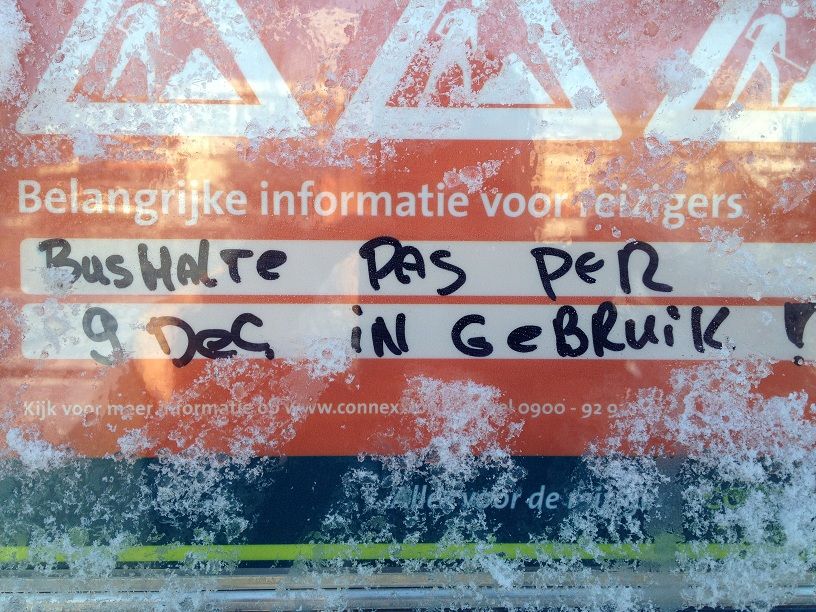 Belangrijke informatie voor reizigers
BUSHALTE PAS PER
9 DEC, IN GEBRUIK !
Kijk voor meer informatie op www.connex 0900 - 92 9
Alles voor de